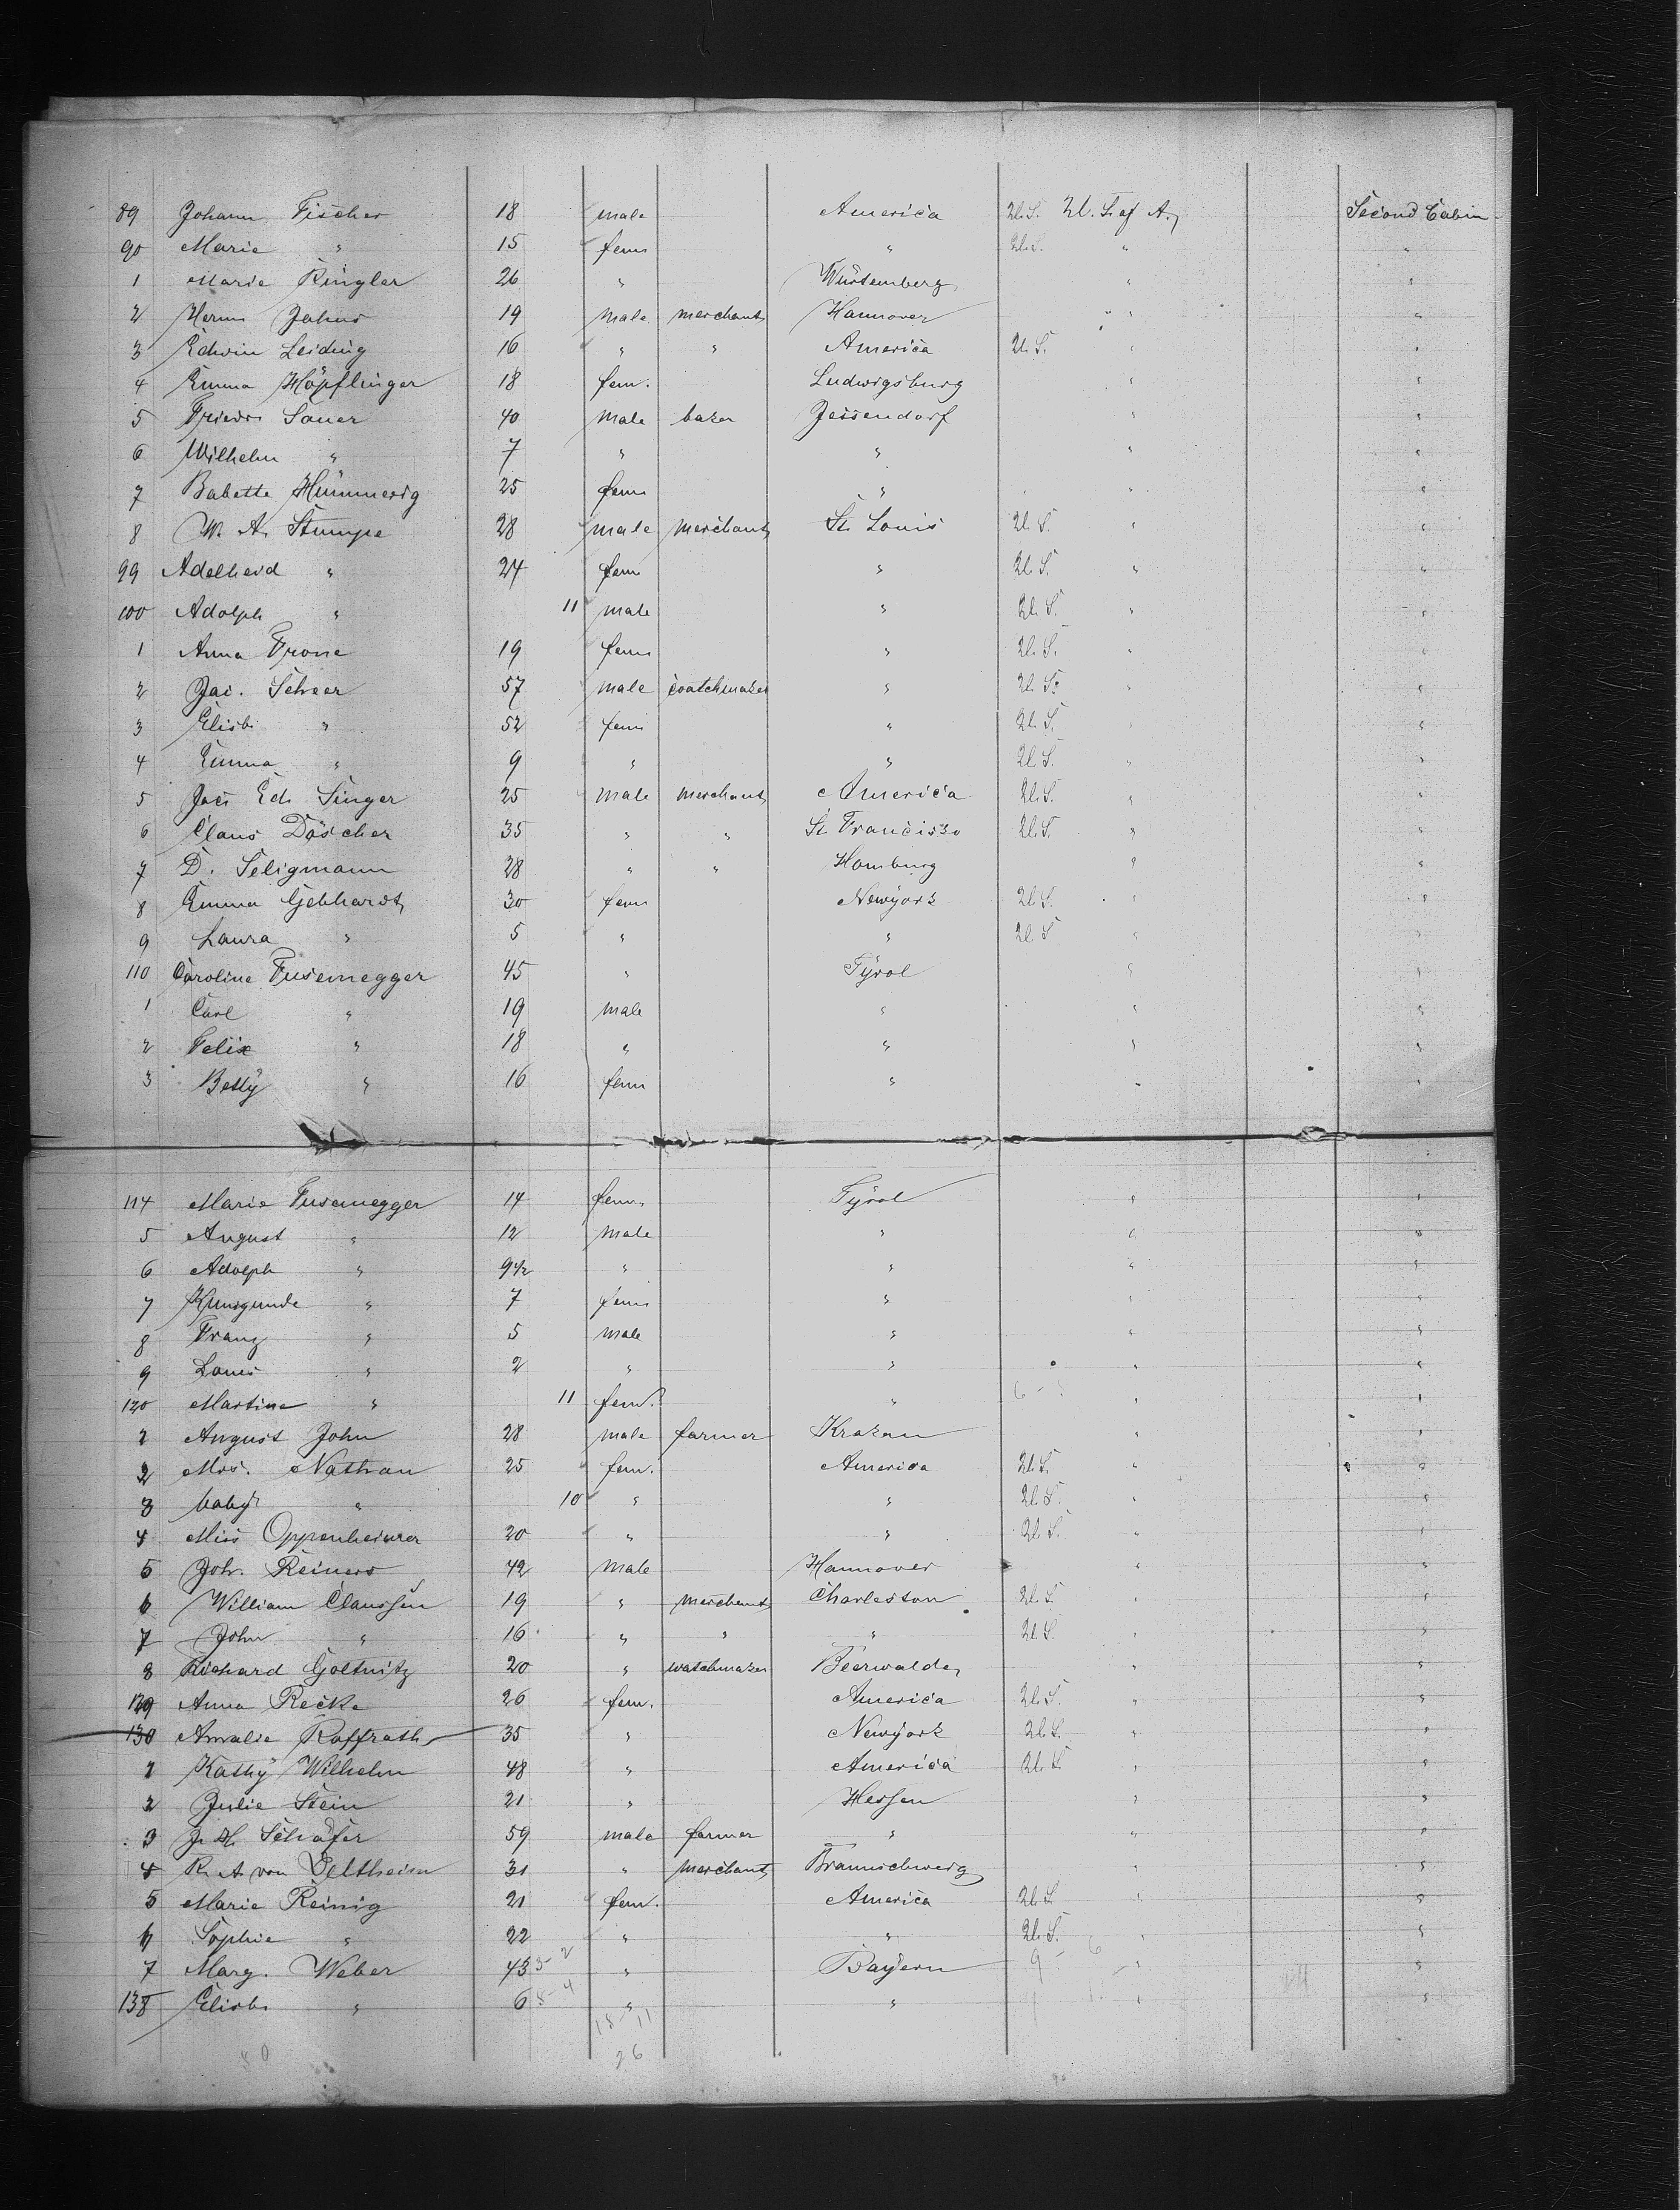 89 Johann Fischer 18 male America U.S. U. S. of A. Second Cabin
90 Marie " 15 fem " U.S. " "
1 Marie Ringler 26 " Würtemberg " "
2 Herm Jahns 19 male merchant Hannover " "
3 Edwin Leiding 16 " " America U.S. " "
4 Emma Höpflinger 18 fem. Ludwigsburg " "
5 Friedr Sauer 40 male baker Jessendorf " "
6 Wilhelm " 7 " " " "
7 Babette Hümmerig 25 fem " " "
8 W. A. Stumpe 28 male merchant St. Louis U.S. " "
99 Adelheid " 24 fem " U.S. " "
100 Adolph " 11 male " U.S. " "
1 Anna Frone 19 fem " U.S. " "
2 Jac. Scheer 57 male coatchmaker " U.S. " "
3 Elisb " 52 fem " U.S. " "
4 Emma " 9 " " U.S. " "
5 Jac Ed. Singer 25 male merchant America U.S. " "
6 Claus Döscher 35 " " St. Francisko U.S. " "
7 D. Seligmann 28 " " Hamburg " "
8 Emma Gebhardt 30 fem Newyork U.S. " "
9 Laura " 5 " " U.S. " "
110 Caroline Fusenegger 45 " Tyrol " "
1 Carl " 19 male " " "
2 Felix " 18 " " " "
3 Betty " 16 fem " " "
114 Marie Fusenegger 14 fem. Tyrol " "
5 August " 12 male " " "
6 Adolph " 9½ " " " "
7 Kunigunde " 7 fem " " "
8 Franz " 5 male " " "
9 Louis " 2 " " " "
120 Martina " 11 fem. " " "
1 August John 28 male farmer Krakau " "
2 Mrs. Nathan 25 fem. America U.S. " "
3 baby " 10 " " U.S. " "
4 Miss Oppenheimer 20 " " U.S. " "
5 Joh. Reiners 42 male Hannover " "
6 William Claussen 19 " merchant Charleston U.S. " "
7 John " 16 " " " U.S. " "
8 Richard Goltnitz 20 " watchmaker Beerwalde " "
129 Anna Recke 26 fem. America U.S. " "
130 Amalie Raffrath 35 " Newyork U.S. " "
1 Kathy Wilhelm 48 " America U.S. " "
2 Julie Stein 21 " Hessen " "
3 J. H. Schäfer 59 male farmer " " "
4 R. A. von Veltheim 31 " merchant Braunschweig " "
5 Marie Reinig 21 fem. America U.S. " "
6 Sophie " 22 " " U.S. " "
7 Marg. Weber 43 " Bayern " "
138 Elisb " 6 " " " "
26